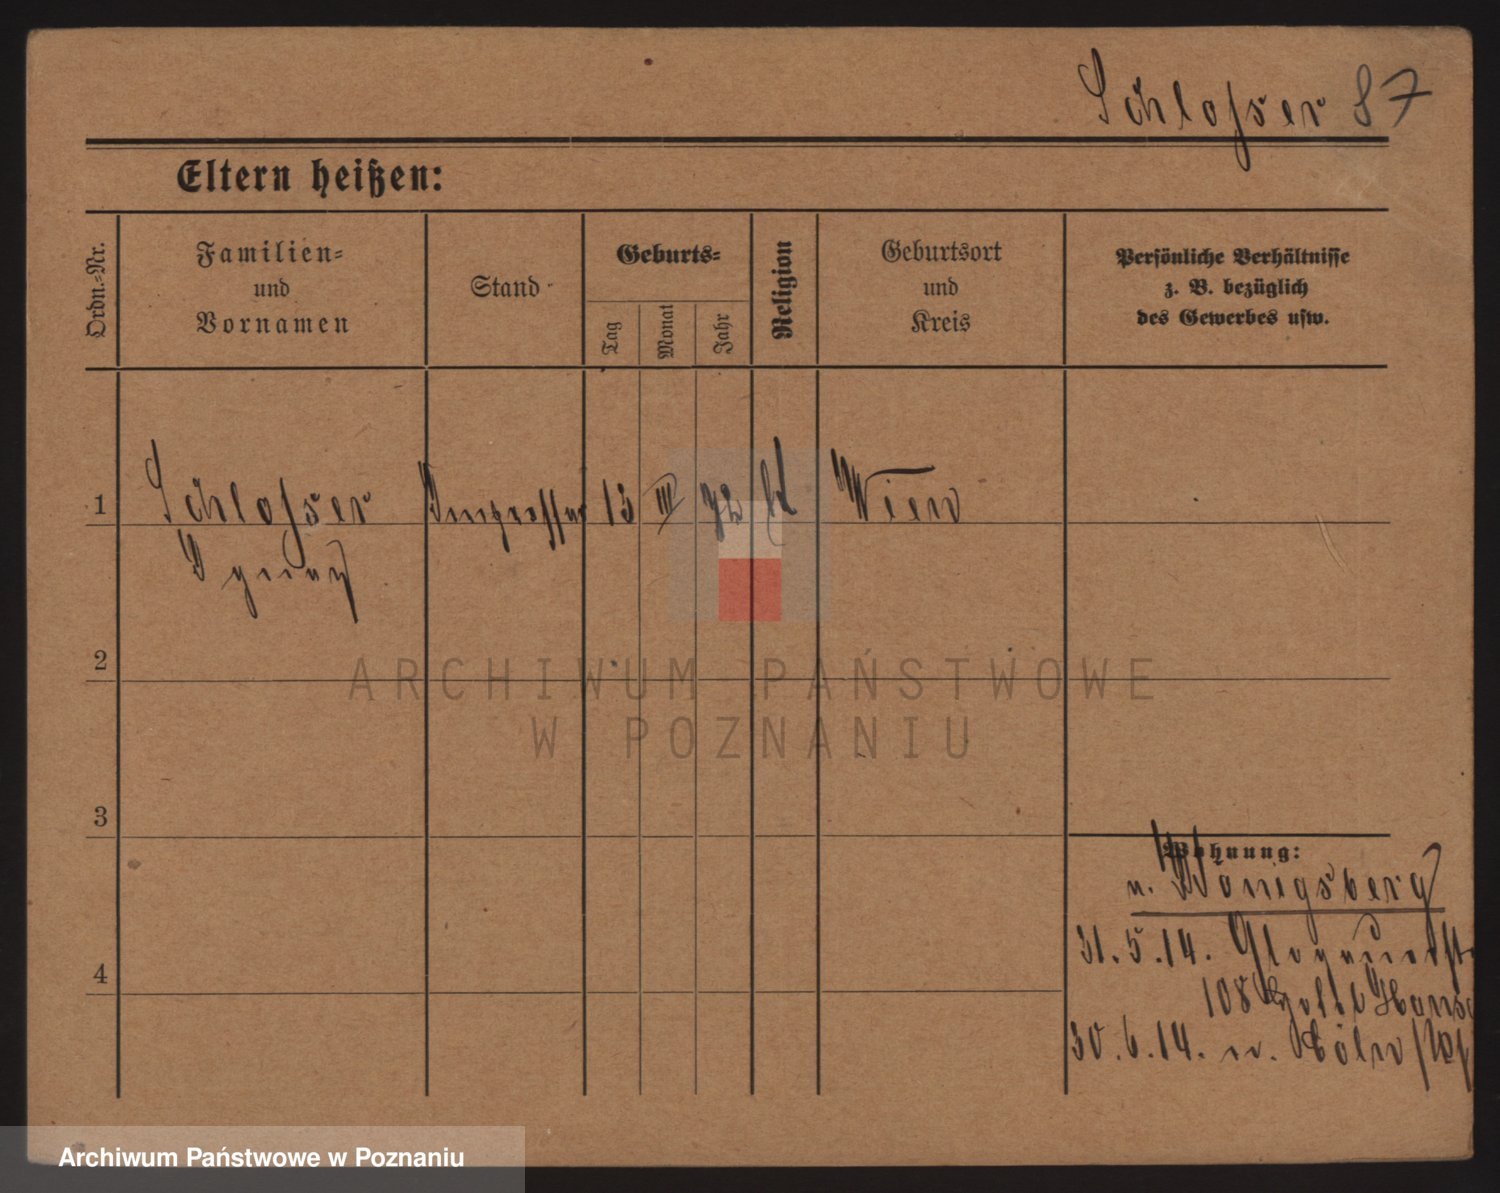 Schlosser 87
Eltern heißen:
Ordn.-Nr.
Familien-
und
Vornamen
Stand
Geburts-
Tag
Monat
Jahr
Religion
Geburtsort
und
Kreis
Persönliche Verhältnisse
z. B. bezüglich
des Gewerbes usw.
1
Schlosser
13 III 72
Wien
2
ARCHIWUM PAŃSTWOWE
W POZNANIU
3
Wohnung:
n. Königsberg
4
31.5.14. Glogauerstr
108
30.6.14. n. Cöln
Archiwum Państwowe w Poznaniu